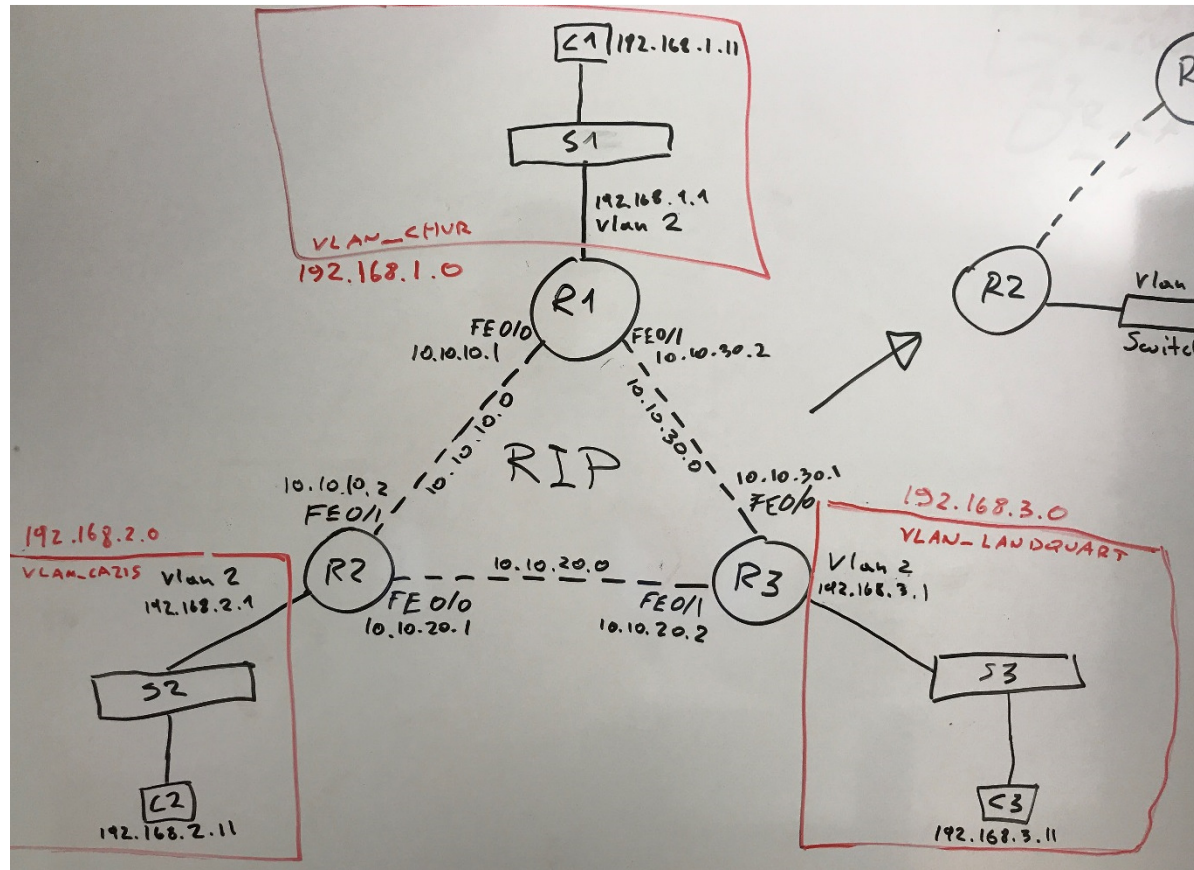 C1
192.168.1.11
S1
192.168.1.1
Vlan 2
VLAN_CHUR
192.168.1.0
R1
FE0/0
10.10.10.1
FE0/1
10.10.30.2
10.10.10.0
10.10.30.0
RIP
10.10.10.2
FE0/1
10.10.30.1
FE0/0
192.168.2.0
VLAN_CAZIS
Vlan 2
192.168.2.1
R2
FE0/0
10.10.20.1
10.10.20.0
FE0/1
10.10.20.2
R3
192.168.3.0
VLAN_LANDQUART
Vlan 2
192.168.3.1
S2
C2
192.168.2.11
S3
C3
192.168.3.11
R
R2
Vlan
Switc